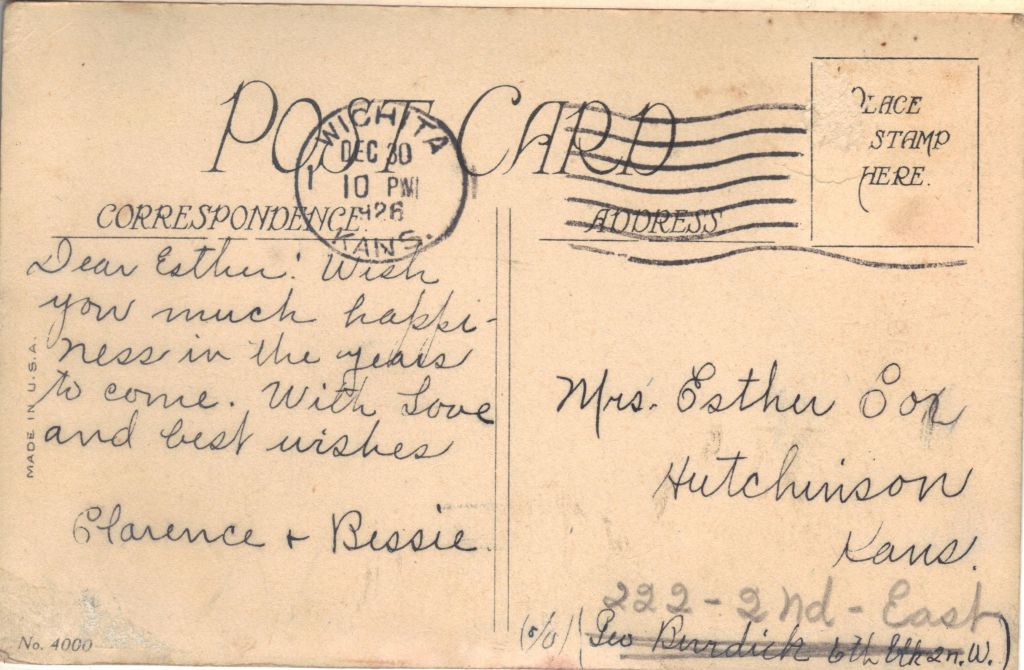 POST CARD
WICHITA
DEC 30
10 PM
1926
KANS.
PLACE
STAMP
HERE.
CORRESPONDENCE
ADDRESS
Dear Esther: Wish
you much happi-
ness in the years
to come. With Love
and best wishes
Clarence + Bessie.
MADE IN U.S.A.
No. 4000
Mrs. Esther Cox
Hutchinson
Kans.
222 - 2nd - East
(c/o) (Geo Burdick 6th Blk 2n. W.)